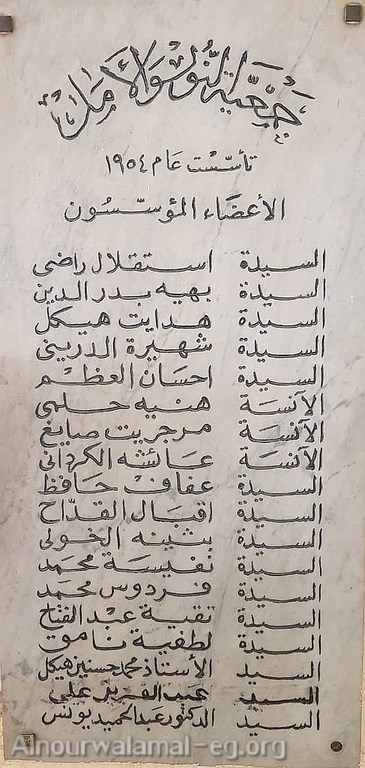 جمعية النور والأمل
تأسست عام ١٩٥٤
الأعضاء المؤسسون
السيدة استقلال راضى
السيدة بهيه بدر الدين
السيدة هدايت هيكل
السيدة شهيرة الدرينى
السيدة احسان العظم
الآنسة هنيه حلمى
الآنسة مرجريت صايغ
الآنسة عائشه الكردانى
السيدة عفاف حافظ
السيدة اقبال القداح
السيدة بثينه الخولى
السيدة نفيسة محمد
السيدة فردوس محمد
السيدة تقية عبد الفتاح
السيدة لطفية نامق
السيد الأستاذ محمد حسنين هيكل
السيد عبد العزيز على
السيد الدكتور عبد الحميد يونس
Alnourwalamal-eg.org